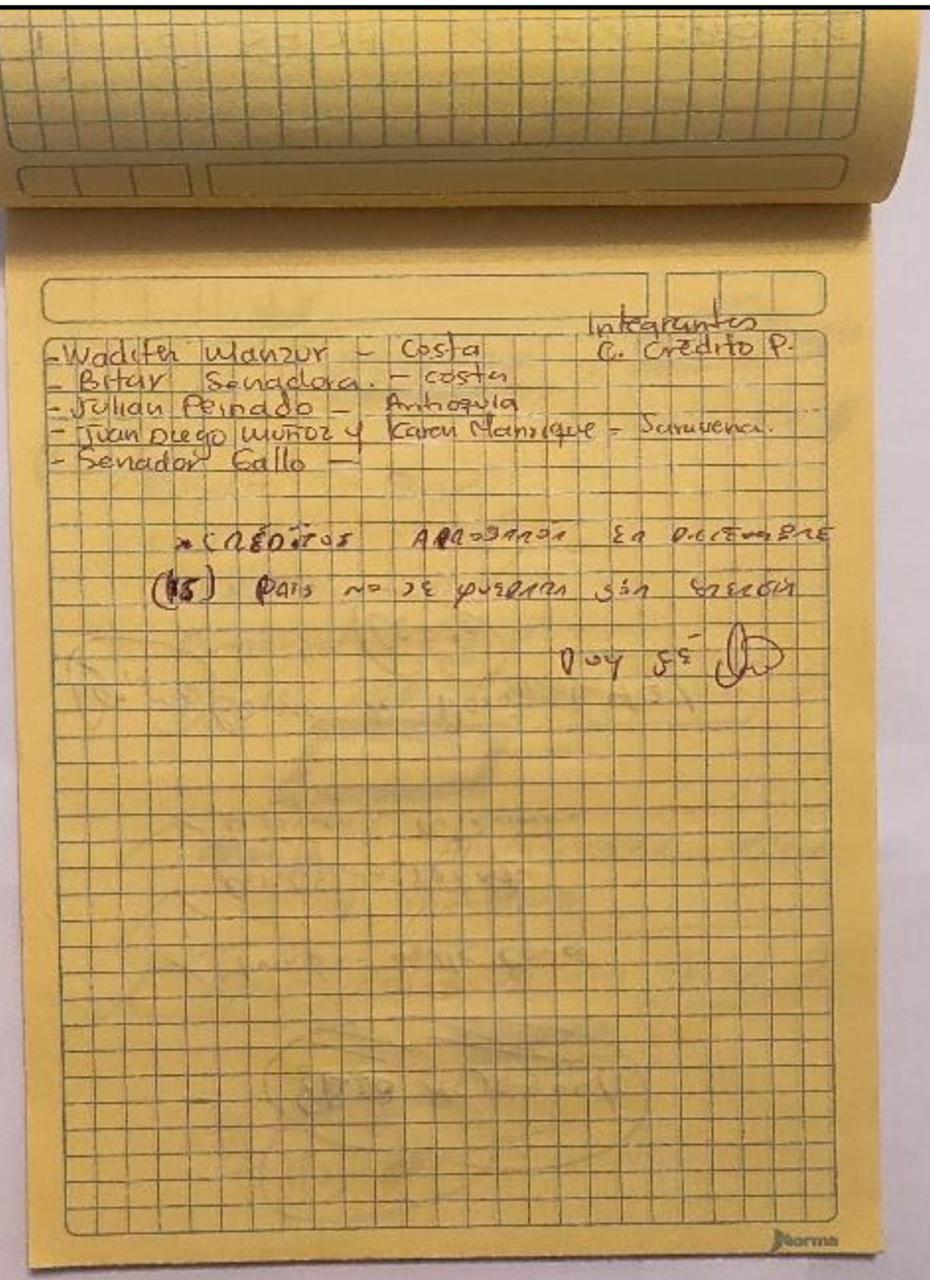 Integrantes
C. Crédito P.
- Wadith Manzur - Costa
- Bitar Senadora. - costa
- Julian Peinado - Antioquia
- Juan Diego Muñoz y Karen Manrique - Saravena.
- Senador Gallo -
* CRÉDITOS APROBARON EN DICIEMBRE
(15) PARA NO SE QUEDARAN SIN
DOY FÉ
Norma